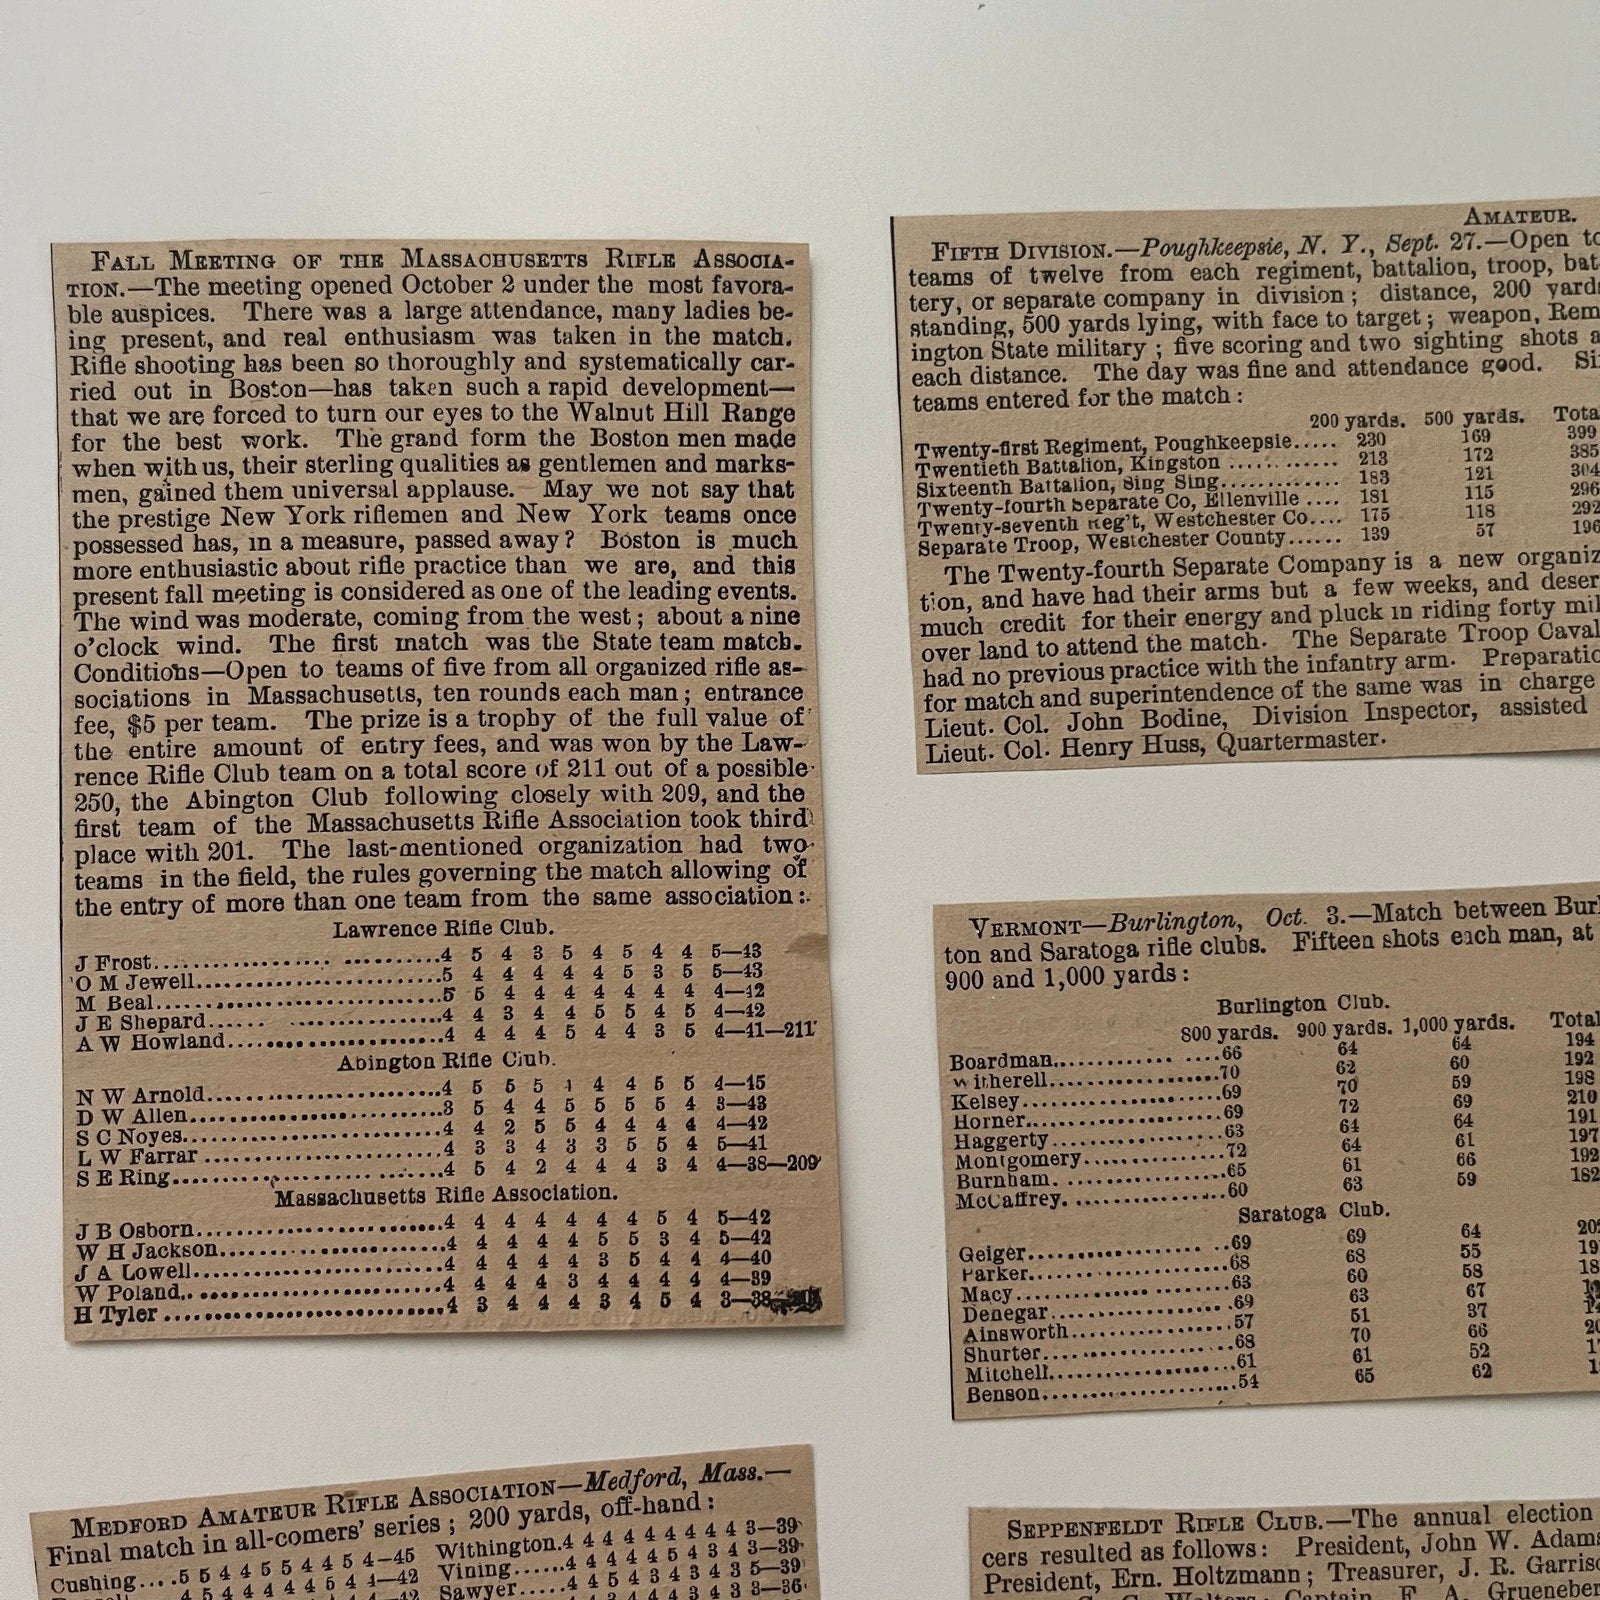 FALL MEETING OF THE MASSACHUSETTS RIFLE ASSOCIA-
TION.—The meeting opened October 2 under the most favora-
ble auspices. There was a large attendance, many ladies be-
ing present, and real enthusiasm was taken in the match.
Rifle shooting has been so thoroughly and systematically car-
ried out in Boston—has taken such a rapid development—
that we are forced to turn our eyes to the Walnut Hill Range
for the best work. The grand form the Boston men made
when with us, their sterling qualities as gentlemen and marks-
men, gained them universal applause. May we not say that
the prestige New York riflemen and New York teams once
possessed has, in a measure, passed away? Boston is much
more enthusiastic about rifle practice than we are, and this
present fall meeting is considered as one of the leading events.
The wind was moderate, coming from the west; about a nine
o'clock wind. The first match was the State team match.
Conditions—Open to teams of five from all organized rifle as-
sociations in Massachusetts, ten rounds each man; entrance
fee, $5 per team. The prize is a trophy of the full value of
the entire amount of entry fees, and was won by the Law-
rence Rifle Club team on a total score of 211 out of a possible
250, the Abington Club following closely with 209, and the
first team of the Massachusetts Rifle Association took third
place with 201. The last-mentioned organization had two
teams in the field, the rules governing the match allowing of
the entry of more than one team from the same association:
Lawrence Rifle Club.
J Frost....................4 5 4 3 5 4 5 4 4 5—43
O M Jewell....................5 4 4 4 4 4 5 3 5 5—43
M Beal....................5 5 4 4 4 4 4 4 4 4—42
J E Shepard....................4 4 3 4 4 5 5 4 5 4—42
A W Howland....................4 4 4 4 5 4 4 3 5 4—41—211
Abington Rifle Club.
N W Arnold....................4 5 5 5 4 4 4 5 5 4—45
D W Allen....................3 5 4 4 5 5 5 5 4 3—43
S C Noyes....................4 4 2 5 5 4 4 4 4 4—42
L W Farrar....................4 3 3 4 3 3 5 5 4 5—41
S E Ring....................4 5 4 2 4 4 4 3 4 4—38—209
Massachusetts Rifle Association.
J B Osborn....................4 4 4 4 4 4 4 5 4 5—42
W H Jackson....................4 4 4 4 4 5 5 3 4 5—42
J A Lowell....................4 4 4 4 4 3 5 4 4 4—40
W Poland....................4 4 4 4 3 4 4 4 4 4—39
H Tyler....................4 3 4 4 4 3 4 5 4 3—38
AMATEUR.
FIFTH DIVISION.—Poughkeepsie, N. Y., Sept. 27.—Open to
teams of twelve from each regiment, battalion, troop, bat
tery, or separate company in division; distance, 200 yards
standing, 500 yards lying, with face to target; weapon, Rem
ington State military; five scoring and two sighting shots a
each distance. The day was fine and attendance good. Si
teams entered for the match:
200 yards. 500 yards. Tota
Twenty-first Regiment, Poughkeepsie..... 230 169 399
Twentieth Battalion, Kingston ............ 213 172 385
Sixteenth Battalion, Sing Sing............ 183 121 304
Twenty-fourth Separate Co, Ellenville .... 181 115 296
Twenty-seventh Reg't, Westchester Co.... 175 118 292
Separate Troop, Westchester County...... 139 57 196
The Twenty-fourth Separate Company is a new organiz
tion, and have had their arms but a few weeks, and deser
much credit for their energy and pluck in riding forty mil
over land to attend the match. The Separate Troop Caval
had no previous practice with the infantry arm. Preparatio
for match and superintendence of the same was in charge
Lieut. Col. John Bodine, Division Inspector, assisted
Lieut. Col. Henry Huss, Quartermaster.
VERMONT—Burlington, Oct. 3.—Match between Burl
ton and Saratoga rifle clubs. Fifteen shots each man, at
900 and 1,000 yards:
Burlington Club.
800 yards. 900 yards. 1,000 yards. Total
Boardman....................66 64 64 194
Witherell....................70 62 60 192
Kelsey....................69 70 59 198
Horner....................69 72 69 210
Haggerty....................63 64 64 191
Montgomery....................72 64 61 197
Burnham....................65 61 66 192
McCaffrey....................60 63 59 182
Saratoga Club.
Geiger....................69 69 64 20
Parker....................68 68 55 19
Macy....................63 60 58 18
Denegar....................69 63 67
Ainsworth....................57 51 37 14
Shurter....................68 70 66 20
Mitchell....................61 61 52 1
Benson....................54 65 62 1
MEDFORD AMATEUR RIFLE ASSOCIATION—Medford, Mass.—
Final match in all-comers' series; 200 yards, off-hand:
Cushing....5 5 4 4 5 5 4 4 5 4—45 Withington.4 4 4 4 4 4 4 4 4 3—39
4 5 4 4 4 4 4 5 4 4—42 Vining......4 4 4 4 4 5 4 3 4 3—39
Sawyer.....4 4 5 4 3 4 3 4 3 5—39
3—36
SEPPENFELDT RIFLE CLUB.—The annual election
cers resulted as follows: President, John W. Adams
President, Ern. Holtzmann; Treasurer, J. R. Garriso
Captain, F. A. Grueneber